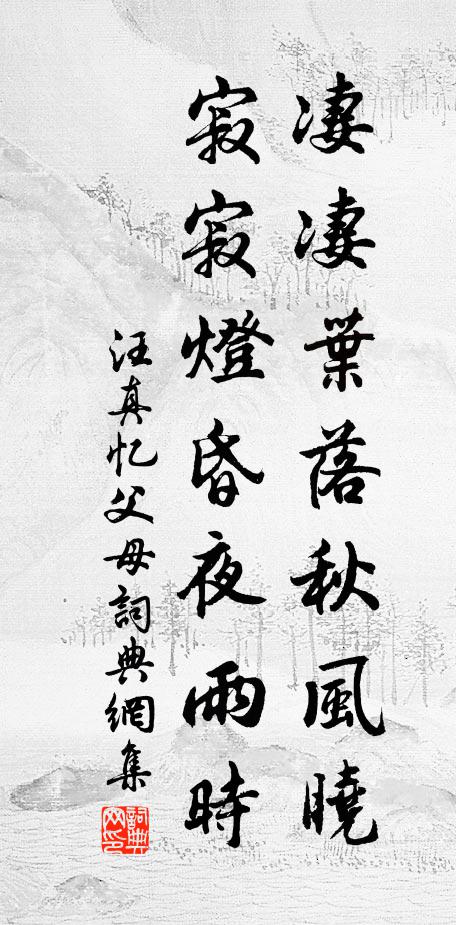 凄凄葉落秋風曉
寂寂燈昏夜雨時
汪真忆父母詞典網集
詞典
网印